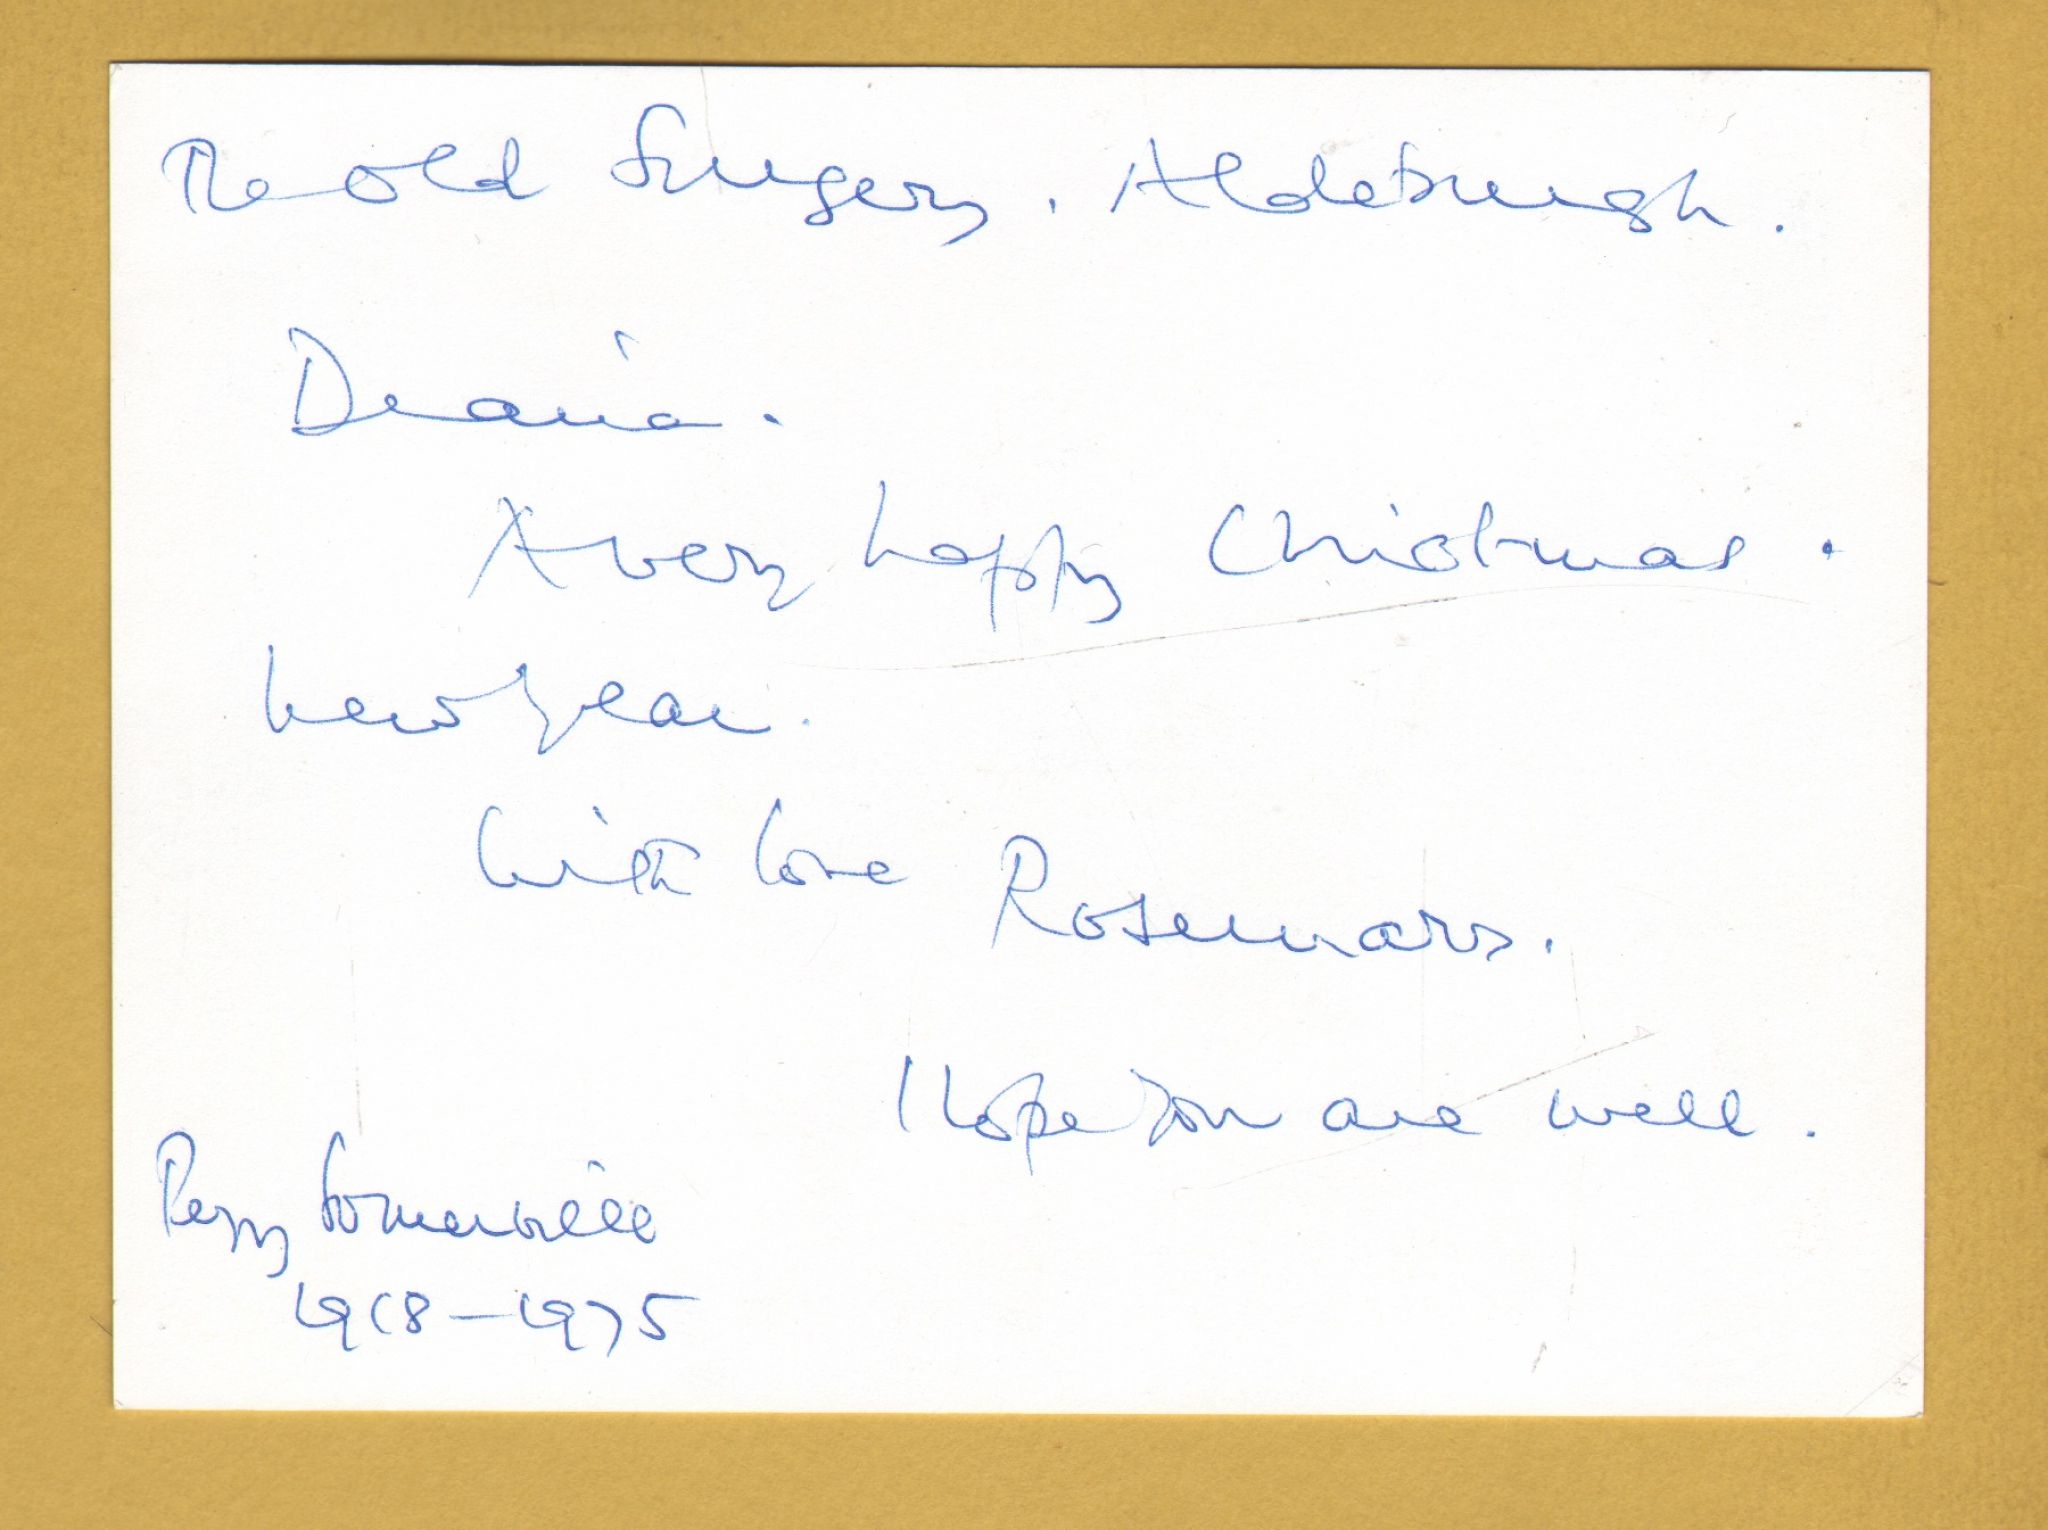 The old Surgery. Aldeburgh.
Diana.
A very happy Christmas .
New Year.
With love Rosemary.
I hope you are well.
Peggy Somerville
1918-1975